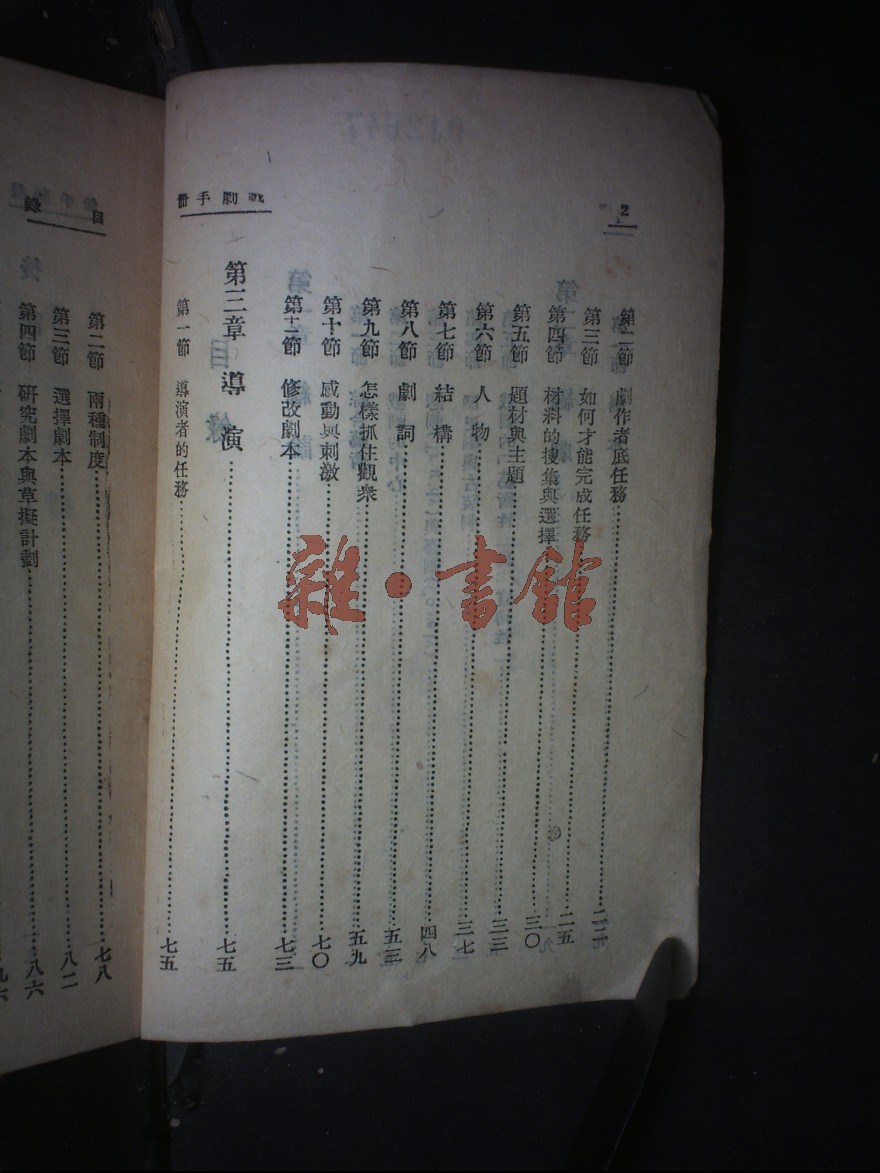 2
戲劇手冊
第二節 劇作者底任務
第三節 如何才能完成任務 二五
第四節 材料的搜集與選擇 三〇
第五節 題材與主題 三三
第六節 人物 三七
第七節 結構 四八
第八節 劇詞 五三
第九節 怎樣抓住觀衆 五九
第十節 感動與刺激 七〇
第十一節 修改劇本 七三
第三章 導演 七五
第一節 導演者的任務 七五
目錄
第二節 兩種制度 七八
第三節 選擇劇本 八二
第四節 研究劇本與草擬計劃 八六
雜·書館